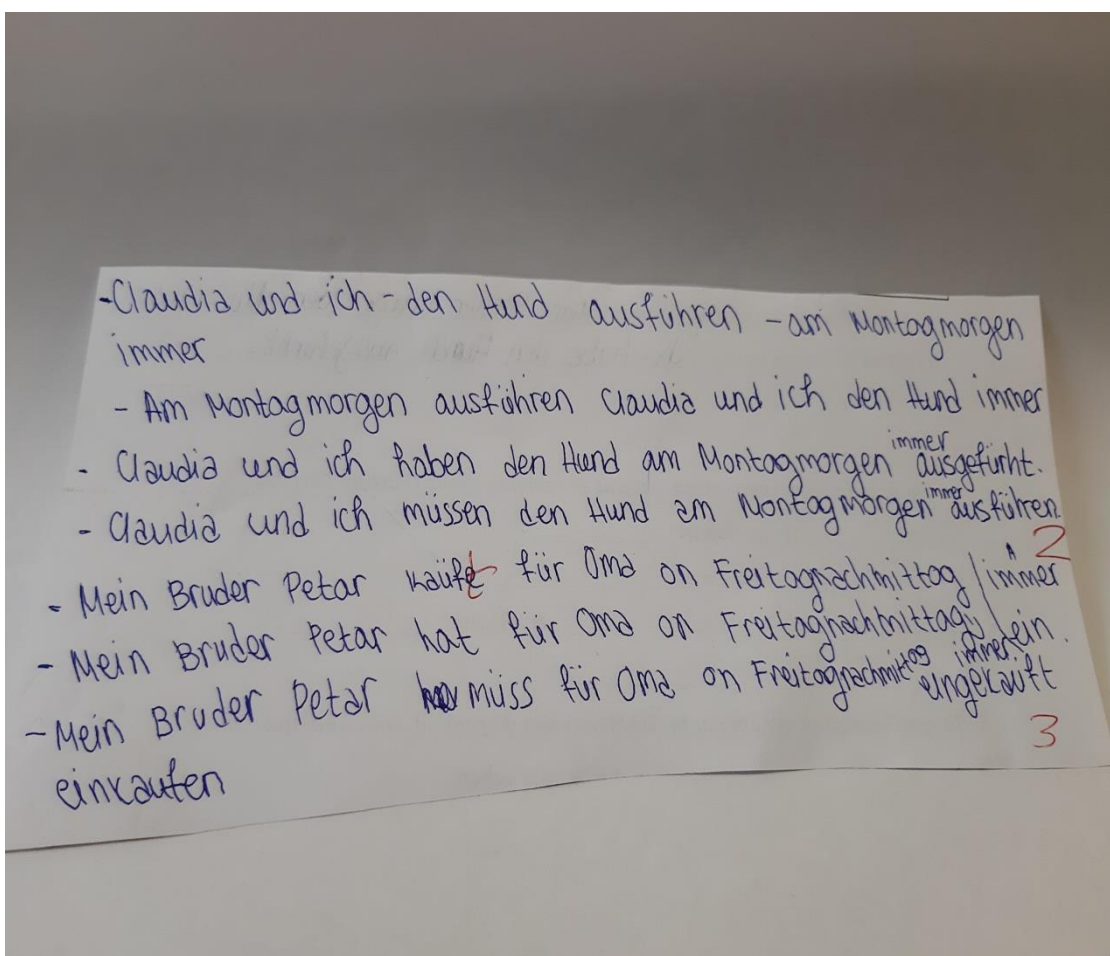 -Claudia und ich - den Hund ausführen - am Montagmorgen
immer
- Am Montagmorgen ausführen Claudia und ich den Hund immer
- Claudia und ich haben den Hund am Montagmorgen immer ausgefürht.
- Claudia und ich müssen den Hund am Montagmorgen immer ausführen.
2
- Mein Bruder Petar kaüft für Oma on Freitagnachmittag / immer
- Mein Bruder Petar hat für Oma on Freitagnachmittag / ein.
- Mein Bruder Petar müss für Oma on Freitagnachmittag immer eingekauft
3
einkaufen